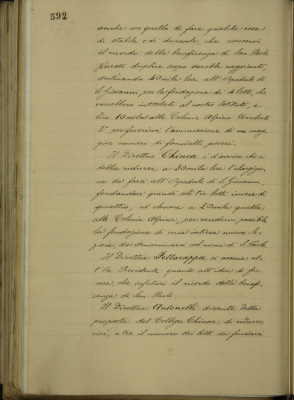 592
anche con quello di fare qualche cosa
di stabile e di durevole, che conservi
il ricordo della beneficenza di San Paolo
Questo duplice scopo sarebbe raggiunto,
destinando 40 mila lire all'Ospedale di
S. Giovanni per la fondazione di 4 letti, che
sarebbero intitolati al nostro Istituto, e
lire 10 mila alle Colonie Alpine
per l'ammissione di un mag
gior numero di fanciulli poveri.
Il Direttore Chiesa è d'avviso che si
debba ridurre a 30 mila lire l'elargizio
ne da farsi all'Ospedale di S. Giovanni,
fondandovi quindi soli tre letti invece di
quattro, ed elevare a 20 mila quella
alle Colonie Alpine, per rendervi possibile
la fondazione di una intiera nuova
da denominarsi col nome di S. Paolo
Il Direttore Pettorappa si associa al
la Presidente quanto all'idea di far
cosa che infuturi il ricordo della benefi
cenza di San Paolo.
Il Direttore Antonelli dissente dalla
proposta del Collega Chiesa, di ridurre
cioè, a tre il numero dei letti da fondarsi